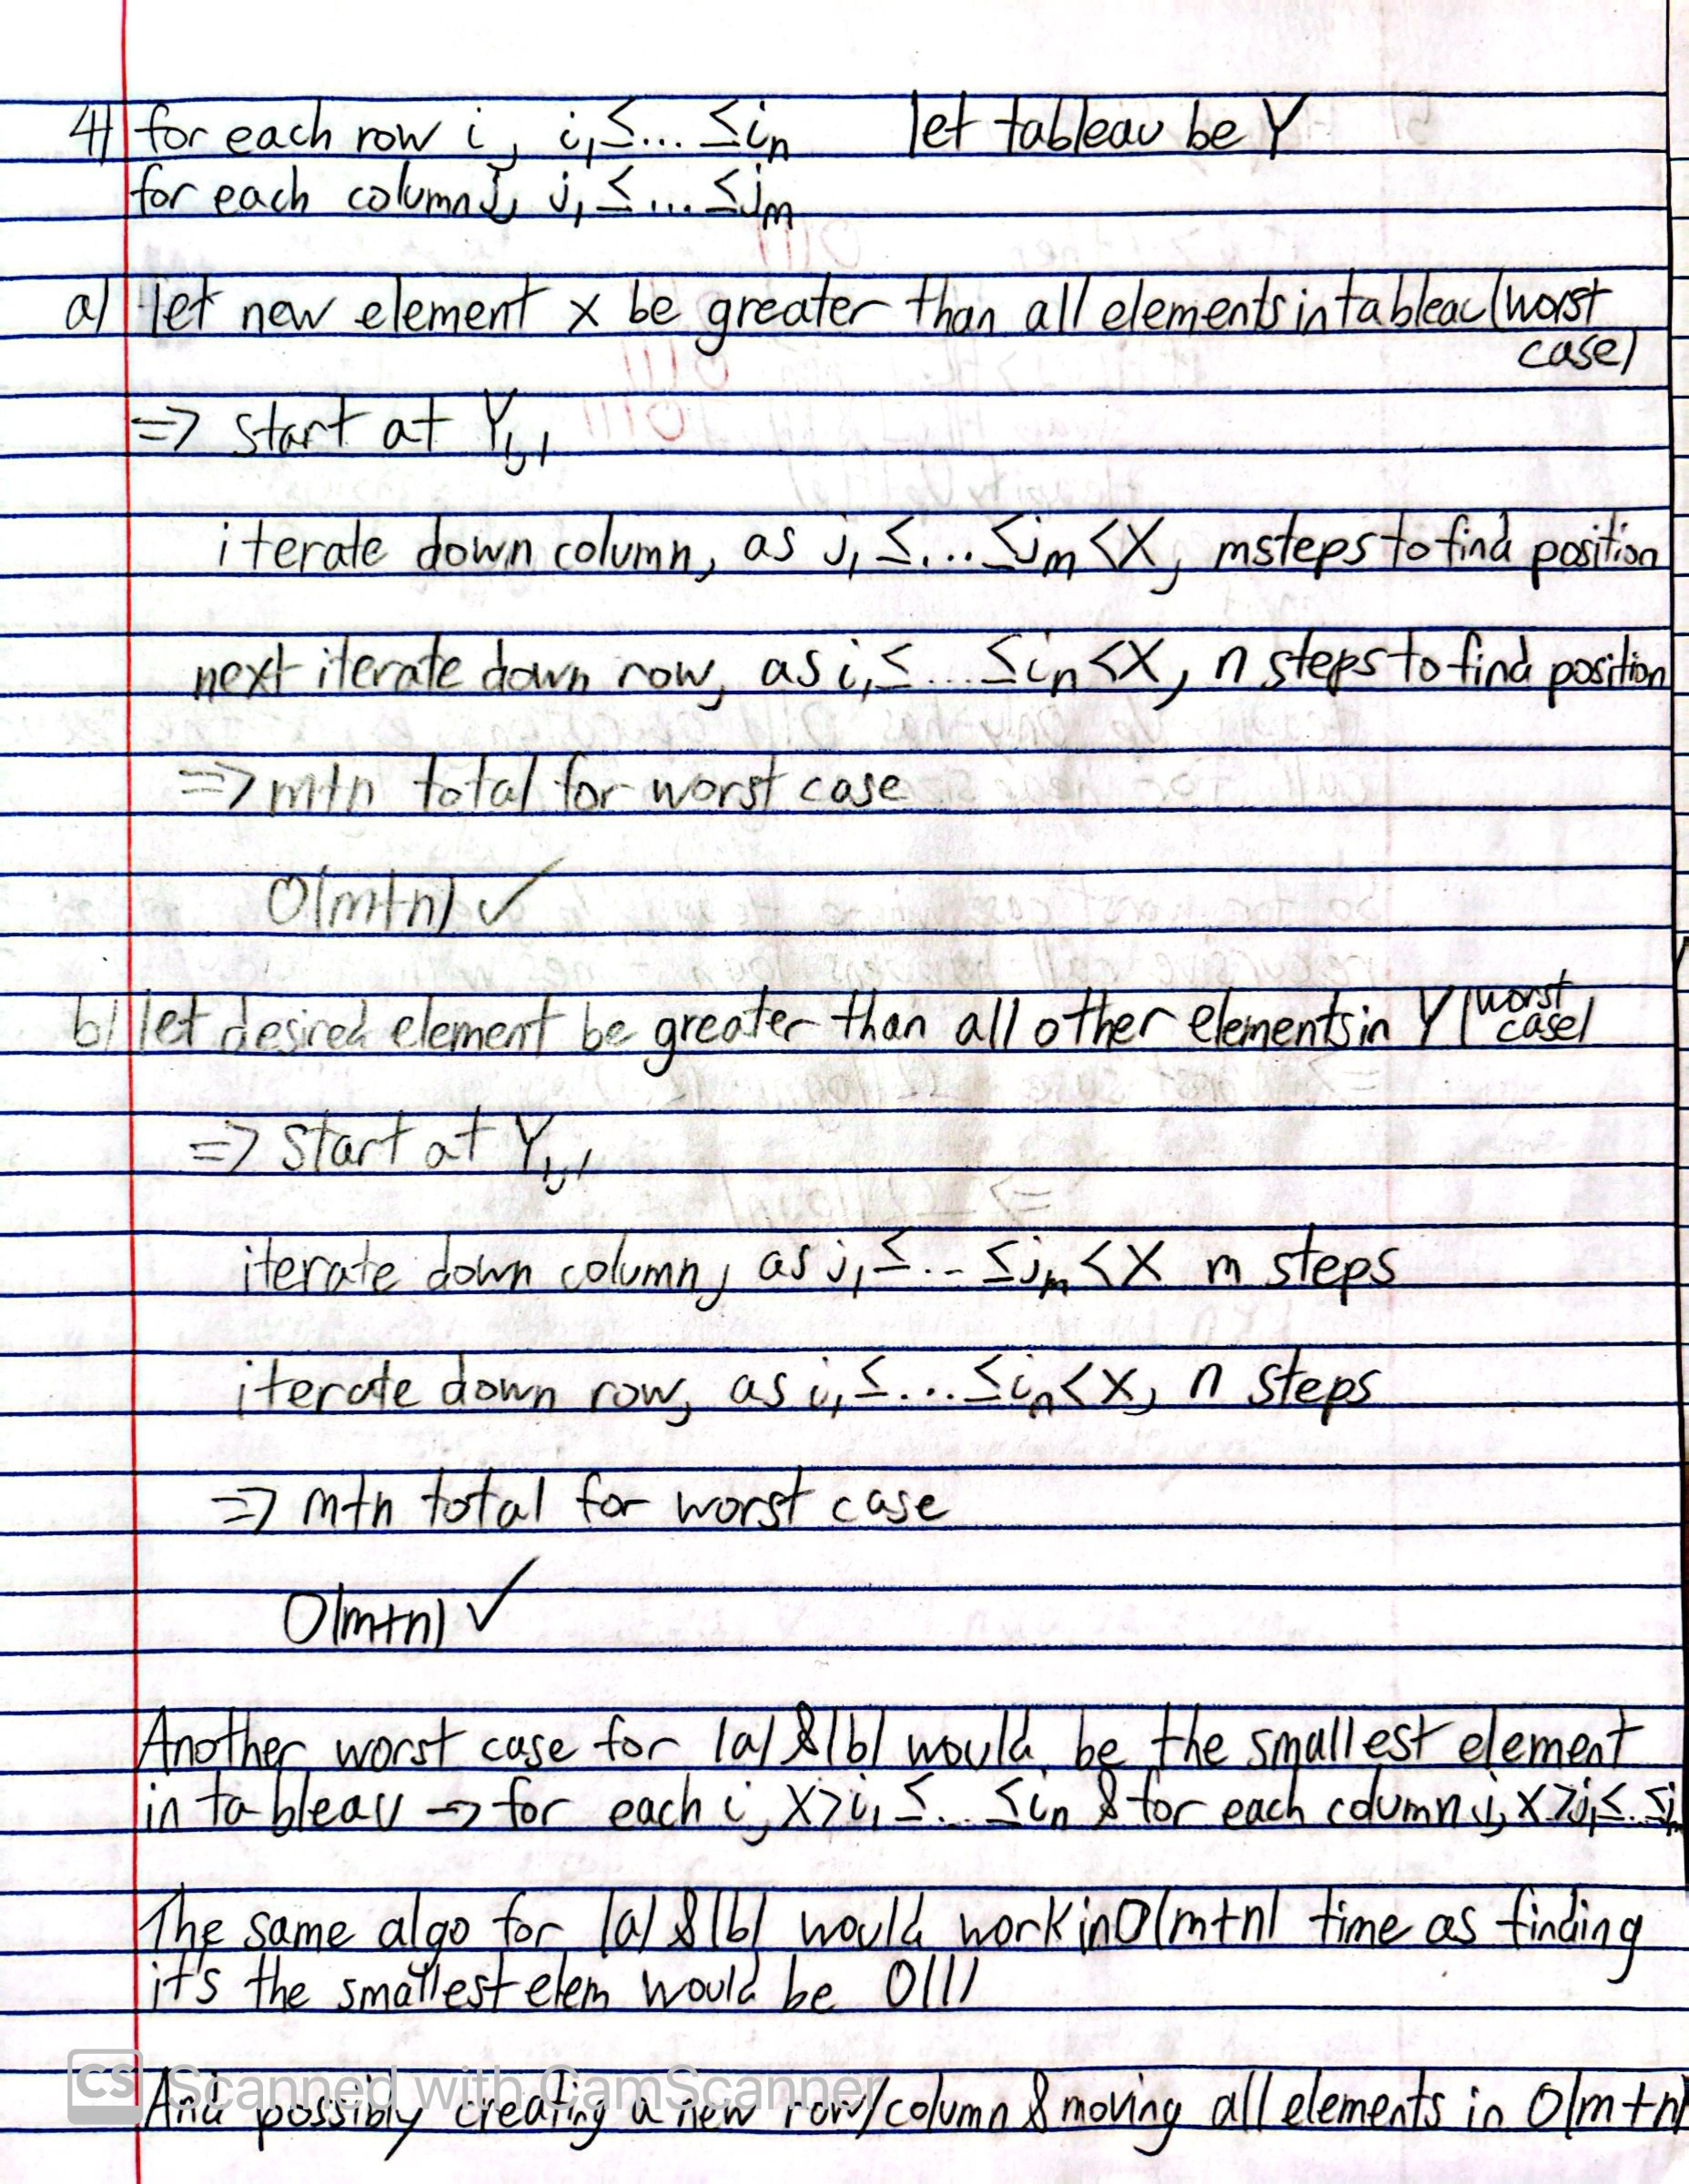 4) for each row i, i₁≤...≤iₙ let tableau be Y
for each column j, j₁≤...≤jₘ
a) let new element x be greater than all elements in tableau (worst case)
=> start at Y₁,₁
iterate down column, as j₁≤...≤jₘ<X, m steps to find position
next iterate down row, as i₁≤...≤iₙ<X, n steps to find position
=> m+n total for worst case
O(m+n) ✓
b) let desired element be greater than all other elements in Y (worst case)
=> start at Y₁,₁
iterate down column, as j₁≤...≤jₘ<X m steps
iterate down row, as i₁≤...≤iₙ<X, n steps
=> m+n total for worst case
O(m+n) ✓
Another worst case for (a) & (b) would be the smallest element
in tableau → for each i, X>i₁≤...≤iₙ & for each column j, x>j₁≤..≤jₘ
The same algo for (a) & (b) would work in O(m+n) time as finding
it's the smallest elem would be O(1)
And possibly creating a new row/column & moving all elements in O(m+n)
CS Scanned with CamScanner